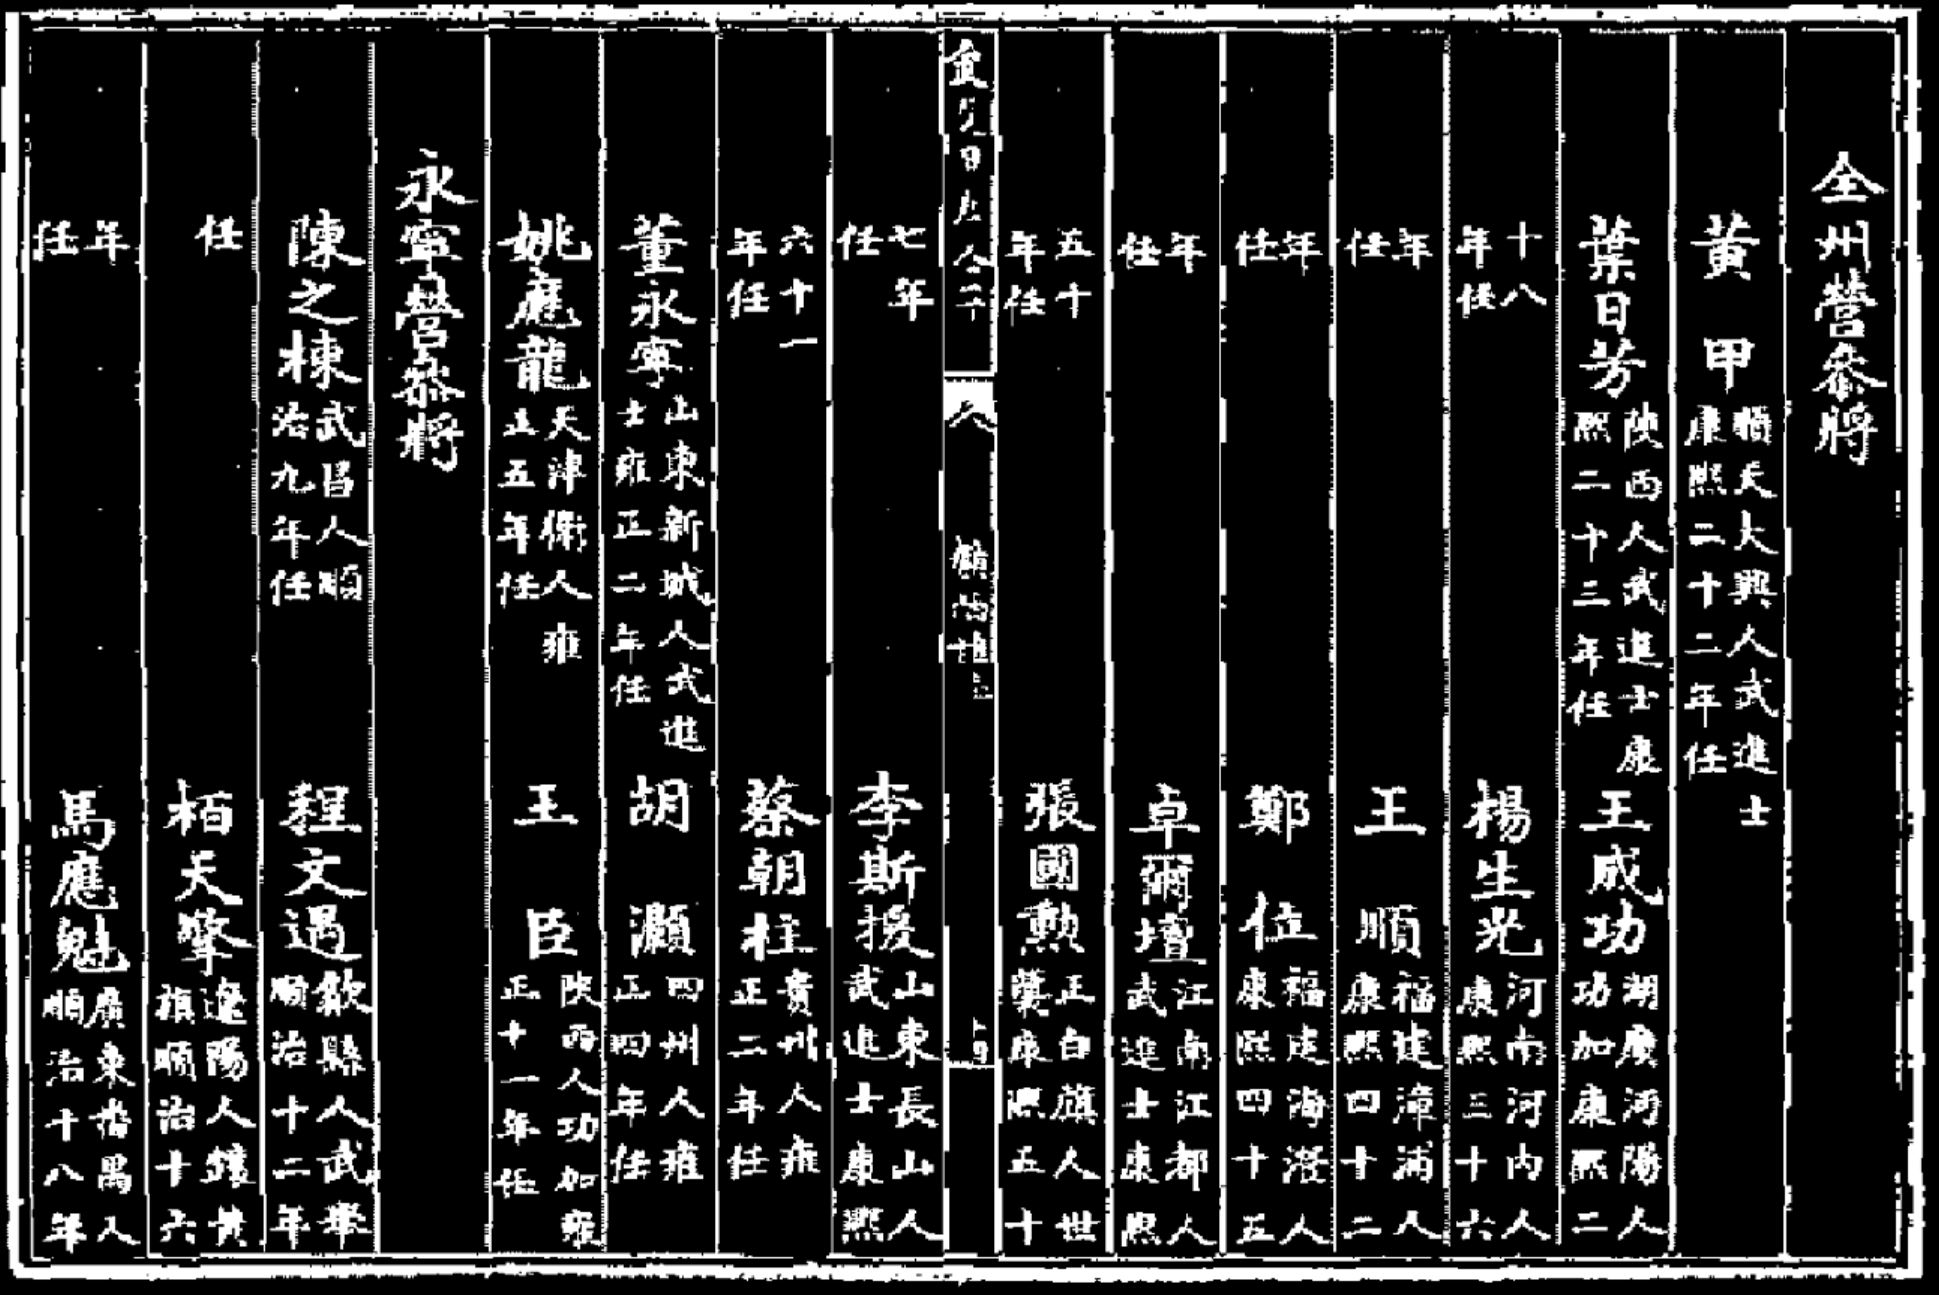 全州營叅將
黃 甲順天大興人武進士康熙二十二年任
葉日芳陝西人武進士康熙二十三年任 王威功湖廣沔陽人功加康熙二
十八年任 楊生光河南河內人康熙三十六
年任 王 順福建漳浦人康熙四十二
年任 鄭 位福建海澄人康熙四十五
年任 卓爾壇江南江都人武進士康熙
五十年任 張國勲正白旗人世襲康熙五十
七年任 李斯援山東長山人武進士康熙
六十一年任 蔡朝柱貴州人雍正二年任
董永寧山東新城人武進士雍正二年任 胡 灝四州人雍正四年任
姚應龍天津衛人雍正五年任 王 臣陝西人功加雍正十一年任
永寧營叅將
陳之棟武昌人順治九年任 程文遇歙縣人武舉順治十二年
任 栢天擎遼陽人鑲黃旗順治十六
年任 馬應魁廣東番禺人順治十八年